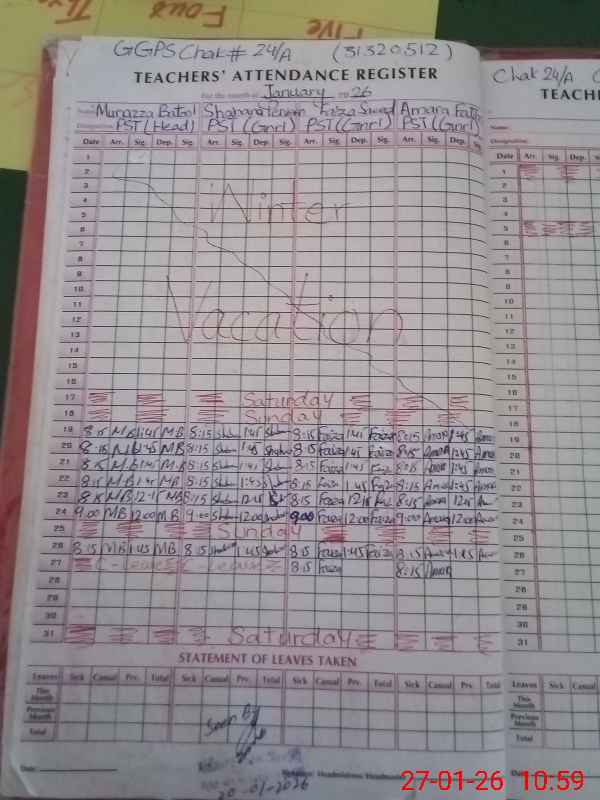 Five
Four
GGPS Chak # 24/A (31320512)
TEACHERS' ATTENDANCE REGISTER
For the month of January 2026
Name Munazza Batool Shabana Perveen Faiza Saeed Amara
Designation PST (Head) PST (Gnrl) PST (Gnrl) PST (Gnrl)
Date Arr. Sig. Dep. Sig. Arr. Sig. Dep. Sig. Arr. Sig. Dep. Sig. Arr. Sig. Dep. Sig.
1
2
3
4
5
6 Winter
7
8
9
10
11
12 Vacation
13
14
15
16
17 Saturday
18 Sunday
19 8:15 MB 1:45 MB 8:15 1:45 8:15 Faiza 1:45 Faiza 8:15 Amara 1:45
20 8:15 MB 1:45 MB 8:15 1:45 8:15 Faiza 1:45 Faiza 8:15 Amara 1:45
21 8:15 MB 1:45 MB 8:15 1:45 8:15 Faiza 1:45 8:15 1:45
22 8:15 MB 1:45 MB 8:15 1:45 8:15 1:45 8:15 1:45
23 8:15 MB 12:15 MB 8:15 12:15 8:15 Faiza 12:15 8:15 12:15
24 9:00 MB 12:00 MB 9:00 12:00 9:00 Faiza 12:00 Faiza 9:00 12:00
25 Sunday
26 8:15 MB 1:45 MB 8:15 1:45 8:15 Faiza 1:45 Faiza 8:15 1:45
27 C-Leave C-Leave 8:15 Faiza 8:15 Amara
28
29
30
31 Saturday
STATEMENT OF LEAVES TAKEN
Leaves Sick Casual Prv. Total Sick Casual Prv. Total Sick Casual Prv. Total Sick Casual Prv. Total
This Month
Previous Month
Total
Seen By
Date:
20-01-2026
Chak 24/A
TEACH
Name:
Designation:
Date Arr. Sig. Dep.
1
2
3
4
5
6
7
8
9
10
11
12
13
14
15
16
17
18
19
20
21
22
23
24
25
26
27
28
29
30
31
Leaves Sick
This Month
Previous Month
Total
Date:
27-01-26 10:59